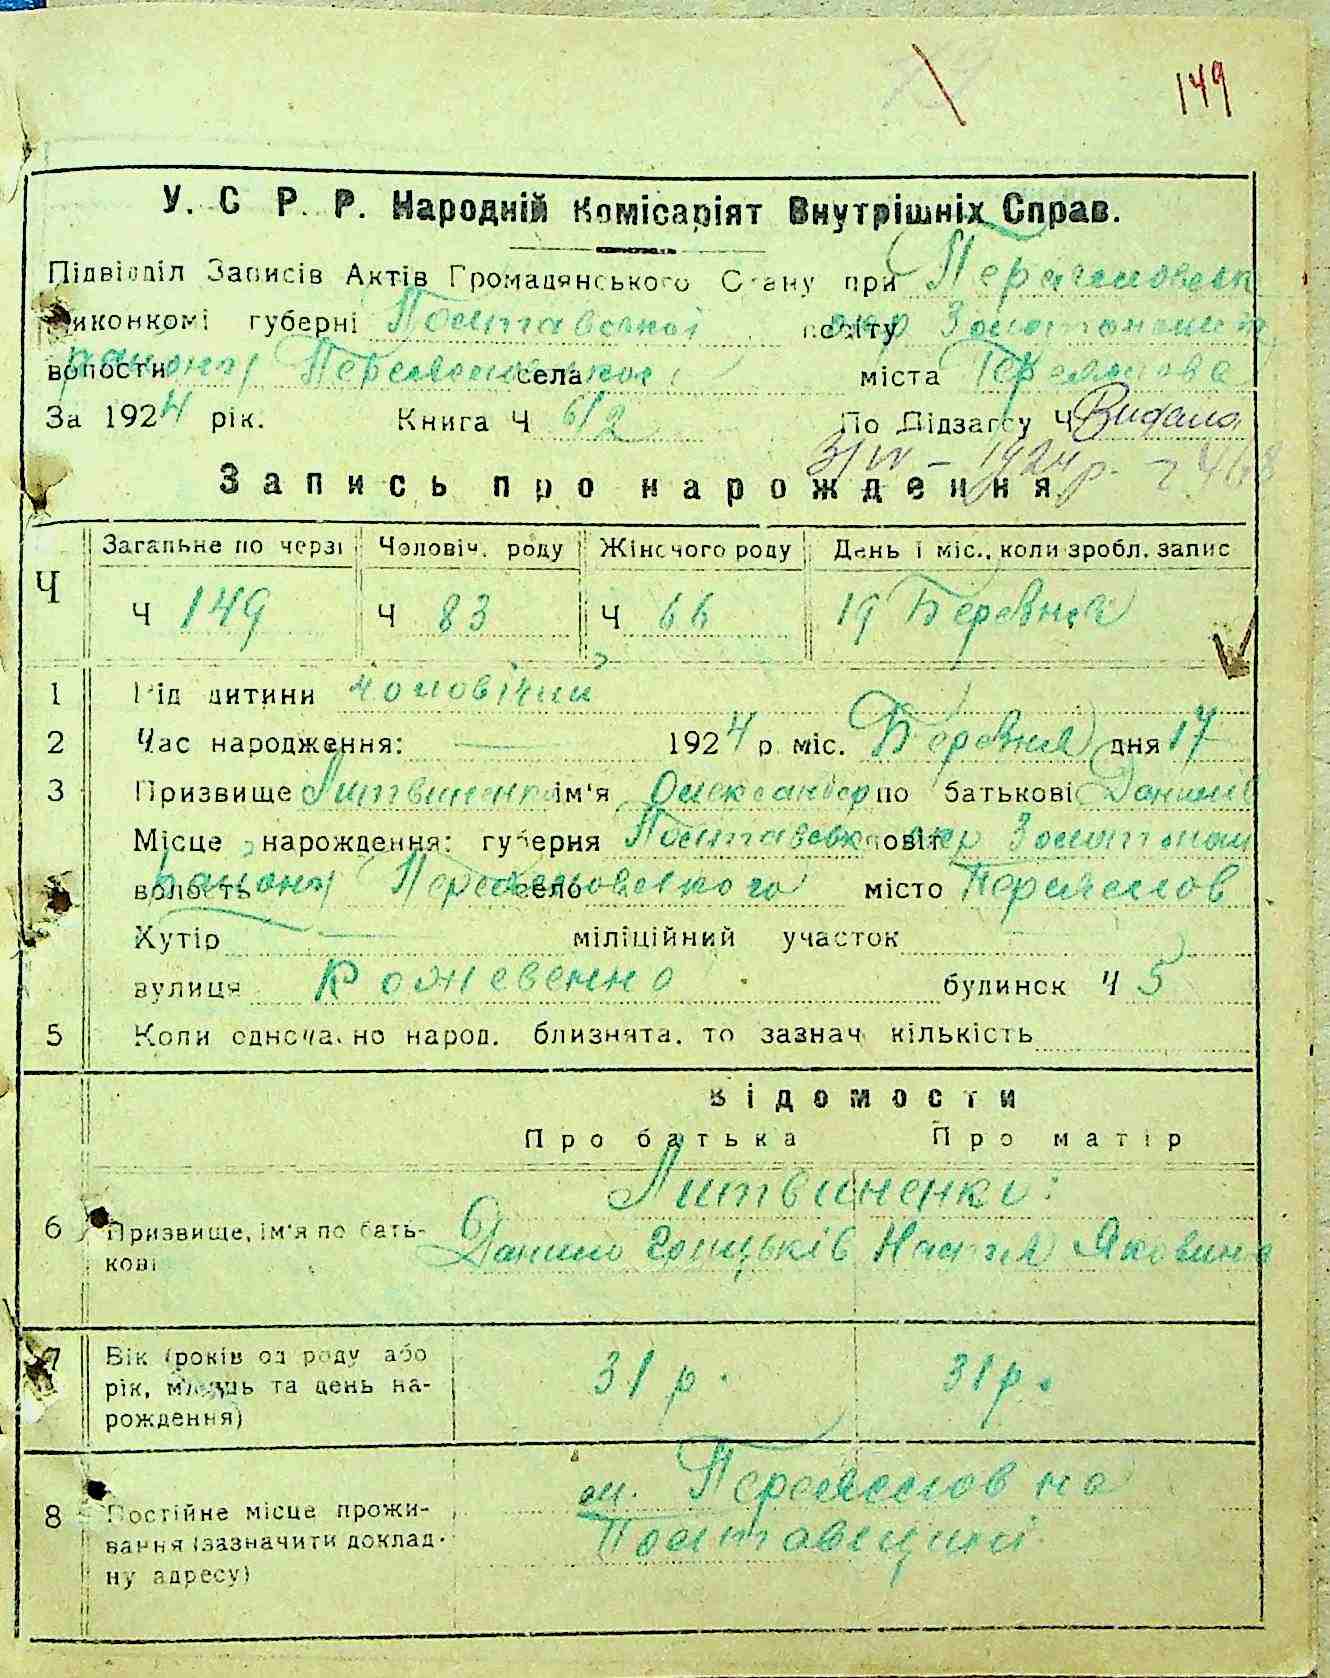 149
У. С Р. Р. Народній Комісаріят Внутрішніх Справ.
Підвідділ Записів Актів Громадянського Стану при
Виконкомі губерні Полтавської повіту окр Золотоноський
волости району села міста Переяслова
За 1924 рік. Книга Ч По Підзагсу Ч Видано
1924 р.
Запись про нарождення
Загальне по черзі Чоловіч. роду Жіночого роду День і міс., коли зробл. запис
Ч Ч 149 Ч 83 Ч 66 19 Березня
1 Рід дитини чоловічий
2 Час народження: 1924 р міс. Березня дня 17
3 Призвище Литвиненко ім'я Олександер по батькові Данилів
Місце нарождення: губерня Полтавська повіт окр Золотонош
волость району Переяславського село місто Переяслов
Хутір міліційний участок
вулиця будинок Ч 5
5 Коли одночасно народ. близнята, то зазнач кількість
Відомости
Про батька Про матір
Литвиненки:
6 Призвище, ім'я по бать- Данило Грицьків Настя Яковина
кові
7 Вік (років од роду або 31 р. 31 р.
рік, місяць та день на-
рождення)
8 Постійне місце прожи- м. Переяслов на
вання (зазначити доклад- Полтавщині
ну адресу)